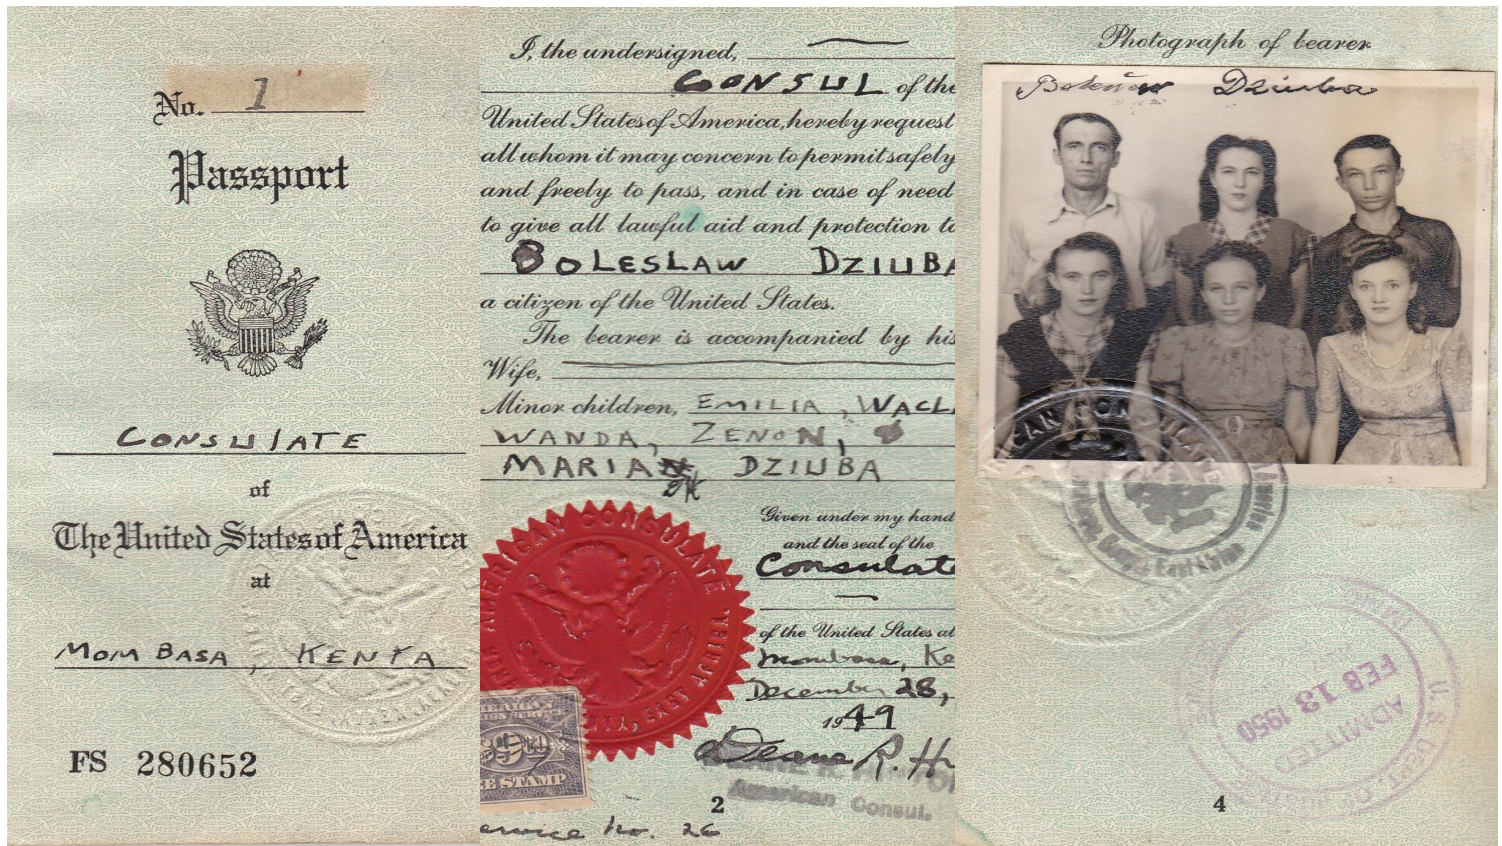 No. 1
Passport
CONSULATE
of
The United States of America
at
MOMBASA, KENYA
FS 280652
I, the undersigned,
CONSUL of the
United States of America, hereby request
all whom it may concern to permit safely
and freely to pass, and in case of need
to give all lawful aid and protection to
BOLESLAW DZIUBA
a citizen of the United States.
The bearer is accompanied by his
Wife,
Minor children, EMILIA, WACL
WANDA, ZENON,
MARIA DZIUBA
Given under my hand
and the seal of the
Consulate
of the United States at
Mombasa, Ke
December 28,
1949
AMERICAN CONSULATE
EAST AFRICA
Deane R. H
American Consul.
E STAMP
ervice No. 26
2
Photograph of bearer
Boleslaw Dziuba
CAN CONSULATE
East African
U.S. DEPT.
ADMITTED
FEB 13 1950
4